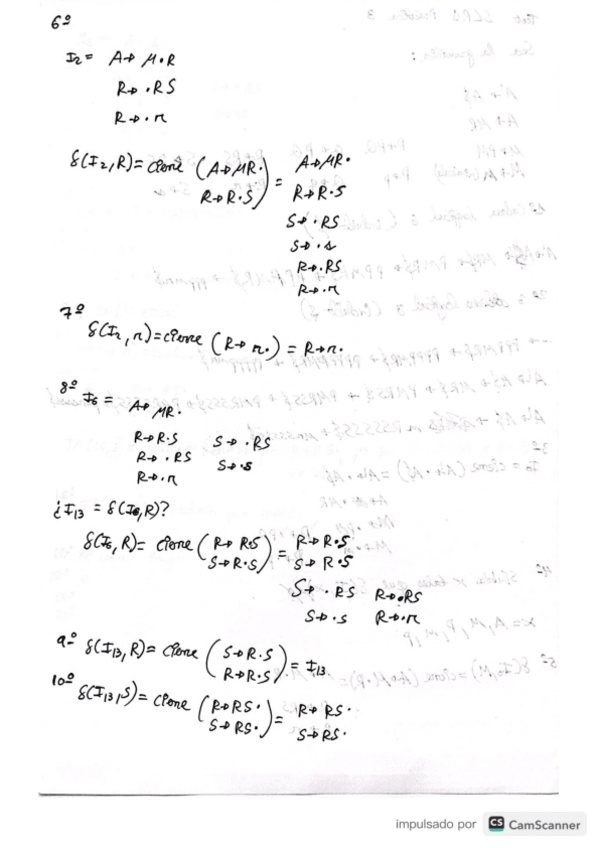 6º
I2 = A→ M·R
R→ ·RS
R→ ·r
δ(I2,R) = cierre (A→MR· R→R·S) = A→MR·
R→R·S
S→ ·RS
S→ ·s
R→ ·RS
R→ ·r
7º
δ(I2,r) = cierre (R→ r·) = R→r·
8º
I6 = A→ MR·
R→R·S S→ ·RS
R→ ·RS S→ ·s
R→ ·r
¿I13 = δ(I6,R)?
δ(I6,R) = cierre (R→ R·S S→R·S) = R→R·S
S→ R·S
S→ ·RS R→ ·RS
S→ ·s R→ ·r
9º δ(I13,R) = cierre (S→R·S R→R·S) = I13
10º δ(I13,S) = cierre (R→RS· S→RS·) = R→ RS·
S→RS·
impulsado por CS CamScanner